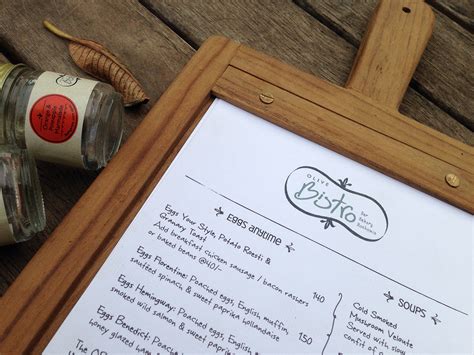 OLIVE
Bistro
EGGS ANYTIME
Eggs Your Style, Potato Roesti &
Granary Toast
Add breakfast chicken sausage / bacon rashers
or baked beans @40/-
Eggs Florentine: Poached eggs, English muffin,
sauteed spinach & sweet paprika hollandaise
140
Eggs Hemingway: Poached eggs, English muffin,
smoked wild salmon & sweet paprika
150
Eggs Benedict: Poached
honey glazed
SOUPS
Cold Smoked
Mushroom Veloute
Served with
confit